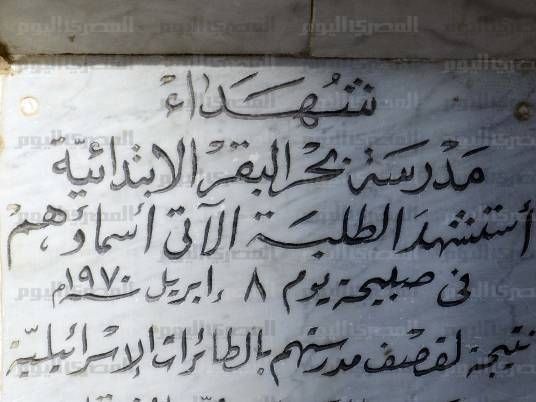 شُهَدَاءْ
مَدْرسَة بحْر البقرْ الابتدائيّة
أستشهدَ الطلبَة الآتى أسماؤهمْ
فى صبيحة يوم ٨ إبريل سنة ١٩٧٠م
نتيجة لقصْف مدرستهم بالطائرات الإسْرائيليّة